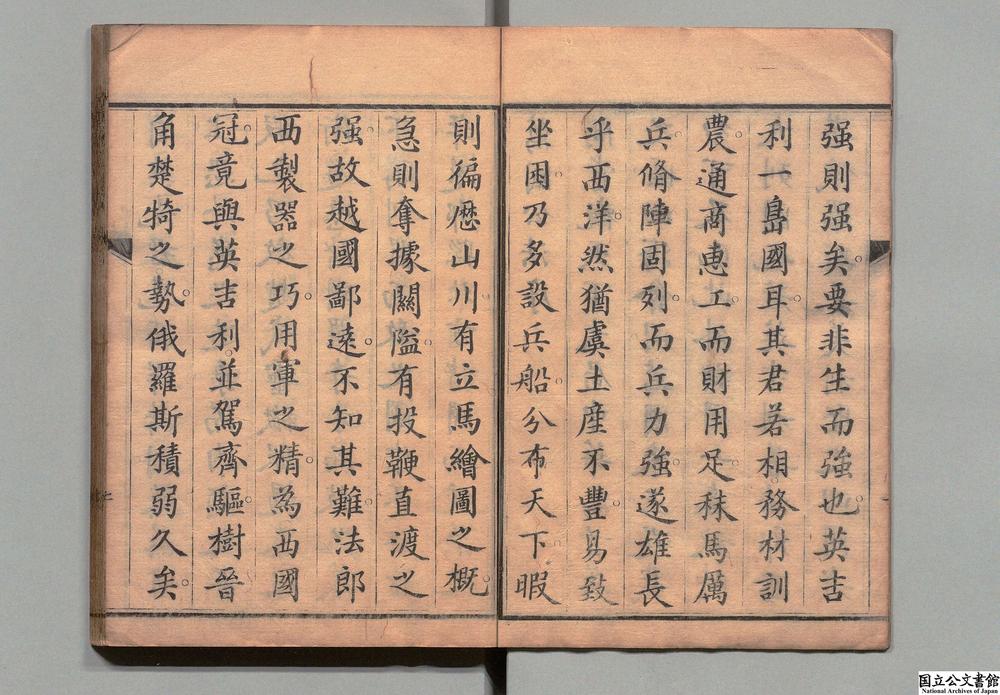 强則强矣要非生而強也英吉
利一島國耳其君若相務材訓
農通商惠工而財用足秣馬厲
兵脩陣固列而兵力強遂雄長
乎西洋然猶虞土產不豐易致
坐困乃多設兵船分布天下暇
則徧歷山川有立馬繪圖之概
急則奪據關隘有投鞭直渡之
强故越國鄙遠不知其難法郎
西製器之巧用軍之精為西國
冠竟與英吉利並駕齊驅樹晉
角楚犄之勢俄羅斯積弱久矣
国立公文書館
National Archives of Japan